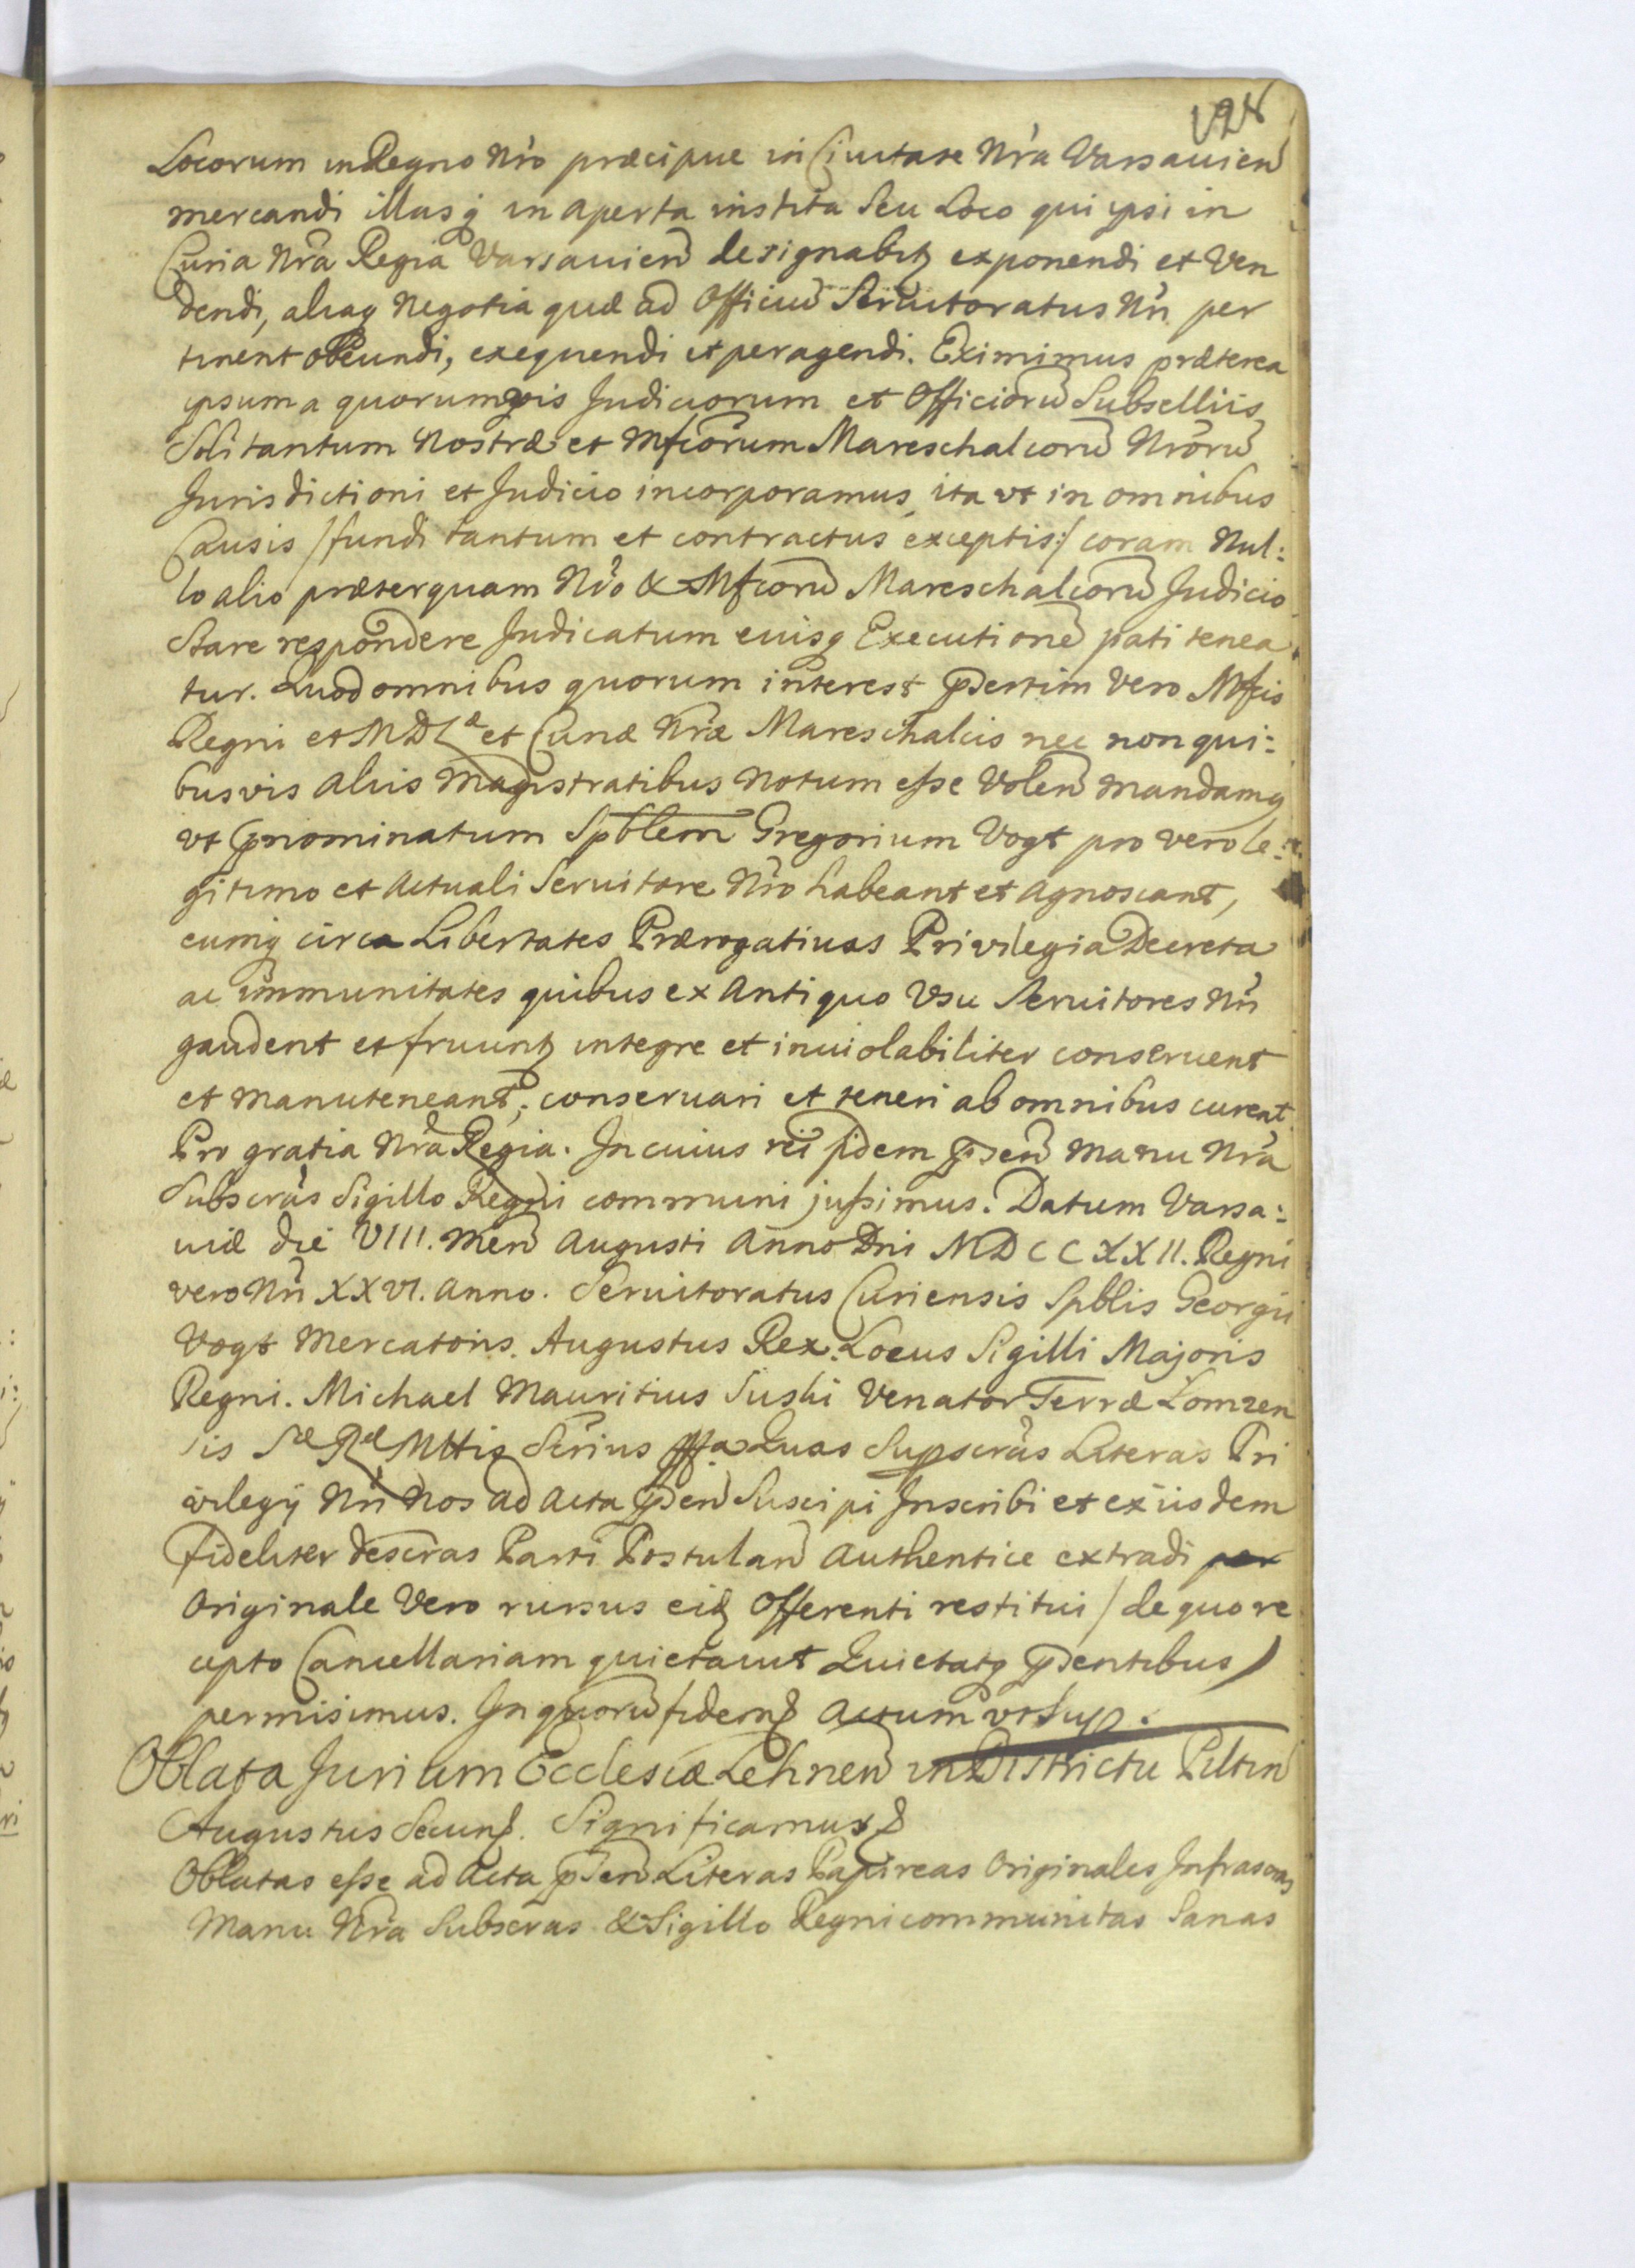 Locorum in Regno Nro præcipue in Ciuitate Nra Varsauien
mercandi illasq in aperta instita Seu Loco qui ipsi in
Curia Nra Regia Varsauien designabitꝫ exponendi et Ven
dendi, aliaq Negotia quæ ad Officiu Seruitoratus Nri per
tinent obeundi, exequendi et peragendi. Eximimus præterea
ipsum a quorumvis Judiciorum et Officioru Subselliis
Soli tantum Nostræ et Mfcorum Mareschalcoru Nroru
Jurisdictioni et Judicio incorporamus, ita vt in omnibus
Causis /fundi tantum et contractus exceptis:/ coram Nul:
lo alio præterquam Nro & Mfcoru Mareschalcoru Judicio
Stare respondere Judicatum euisq Executione pati tenea
tur. Quod omnibus quorum interest psertim Vero Mfcis
Regni et M D L et Curiæ Nræ Mareschalcis nec non qui:
busvis aliis Magistratibus Notum esse Volen mandamq
vt pnominatum Spblem Gregorium Vogt pro vero le:
gitimo et Actuali Seruitore Nro habeant et agnoscant,
eumq circa Libertates Prærogatiuas Privilegia Decreta
ac immunitates quibus ex Antiquo Vsu Seruitores Nri
gaudent et fruuntꝫ integre et inuiolabiliter conseruent
et manuteneant; conseruari et teneri ab omnibus curent
Pro gratia Nra Regia. In cuius rei fidem psen manu Nra
Subscras Sigillo Regni communi jussimus. Datum Varsa:
uiæ die VIII. Men Augusti Anno Dni MDCCXXII. Regni
vero Nri XXVI. Anno. Seruitoratus Curiensis Spblis Georgii
Vogt Mercatoris. Augustus Rex. Locus Sigilli Majoris
Regni. Michael Mauritius Suski Venator Terræ Lomzen
sis Sæ Ræ Mttis Srius Quas Supscras Literas Pri
vilegij Nri Nos ad Acta psen Suscipi Inscribi et ex iisdem
fideliter descras Parti Postulan Authentice extradi per
Originale Vero rursus eidꝫ Offerenti restitui / de quo re
cepto Cancellariam quietauit Quietatq psentibus /
permisimus. In quoru fidem Actum vt Sup.
Oblata Jurium Ecclesiæ Lehnen in Districtu Piltin
Augustus Secund. Significamus
Oblatas esse ad Acta psen Literas Papireas Originales Infrascras
Manu Nra Subscras & Sigillo Regni communitas Sanas